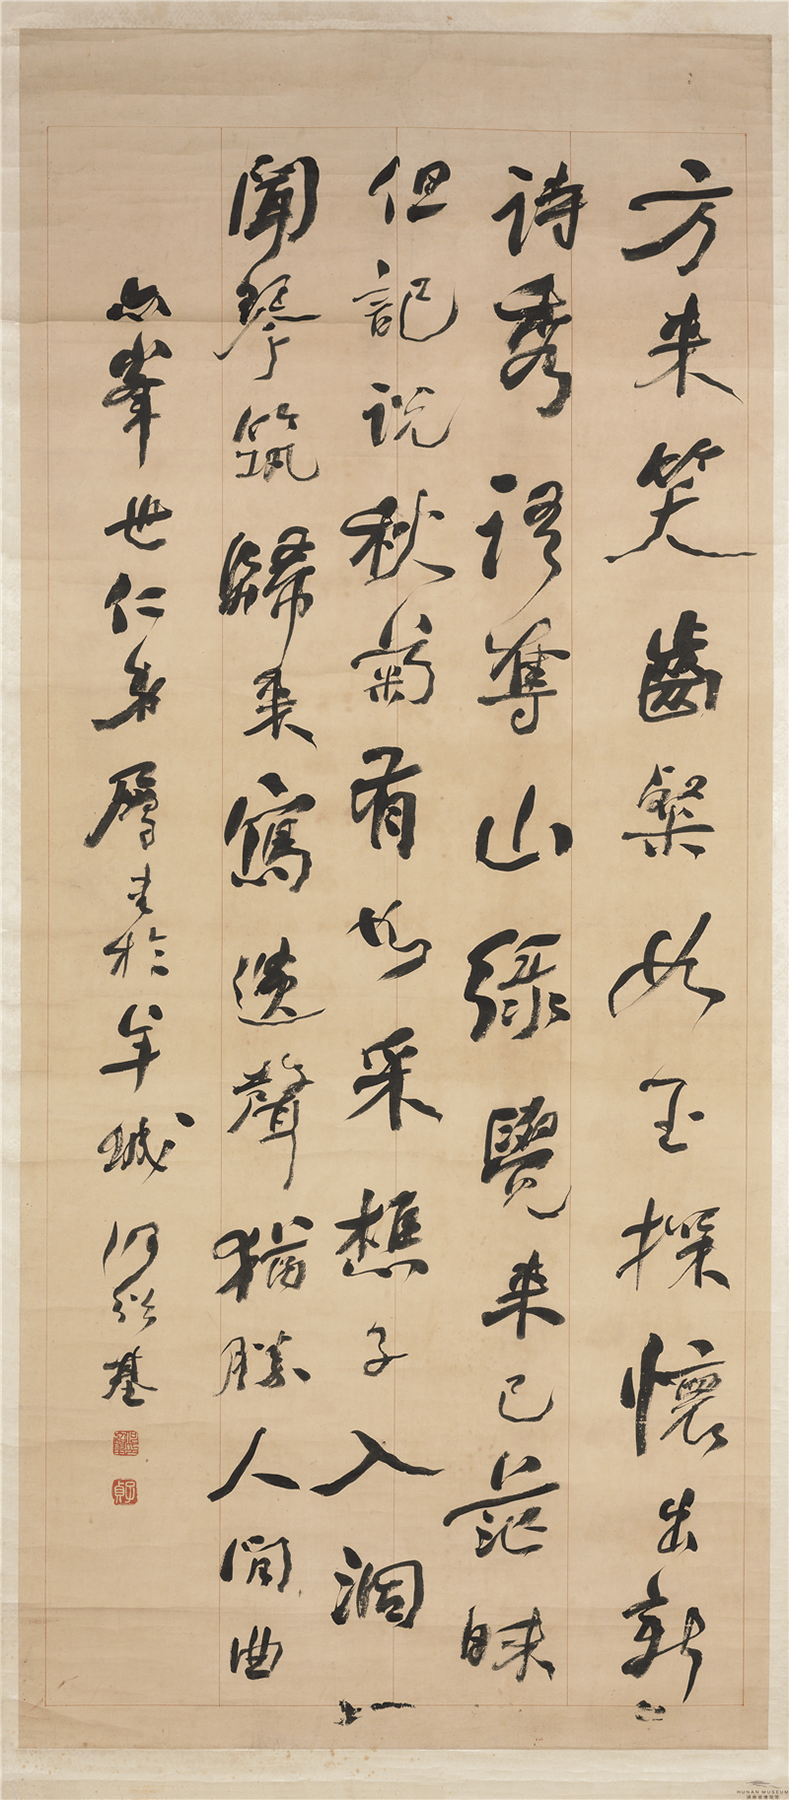 方來笑齒粲如玉探懷出新
詩秀語奪山綠覺來已茫昧
但記說秋菊有如采樵子入洞
聞琴筑歸來寫遺聲猶勝人間曲
亦峯世仁弟屬書於羊城何紹基
子貞
HUNAN MUSEUM